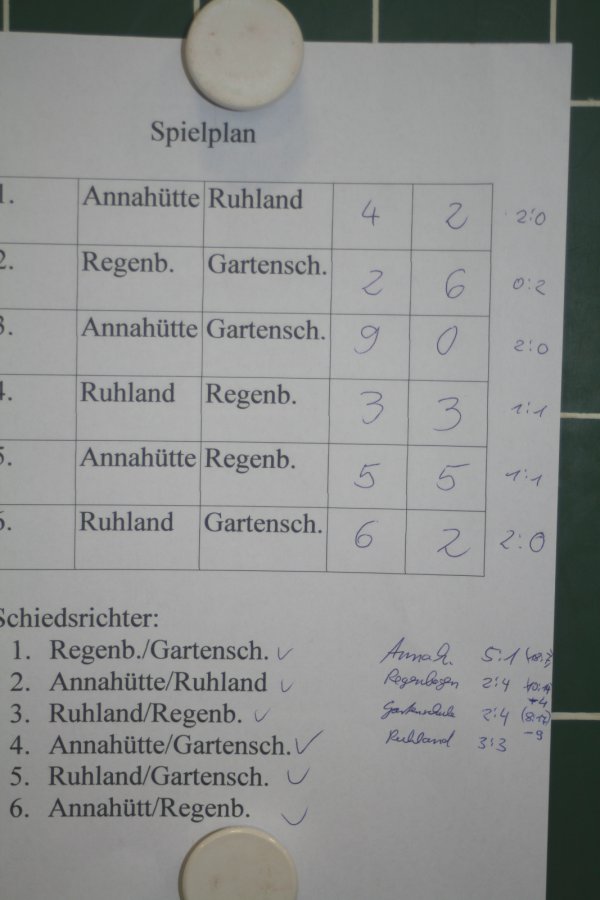 Spielplan
1. Annahütte Ruhland 4 2 2:0
2. Regenb. Gartensch. 2 6 0:2
3. Annahütte Gartensch. 9 0 2:0
4. Ruhland Regenb. 3 3 1:1
5. Annahütte Regenb. 5 5 1:1
6. Ruhland Gartensch. 6 2 2:0
Schiedsrichter:
1. Regenb./Gartensch. ✓ Annah. 5:1 (18:7)
2. Annahütte/Ruhland ✓ Regenbogen 2:4
3. Ruhland/Regenb. ✓ Gartenschule 2:4 (8:17)
-9
4. Annahütte/Gartensch. ✓ Ruhland 3:3
5. Ruhland/Gartensch. ✓
6. Annahütt/Regenb. ✓